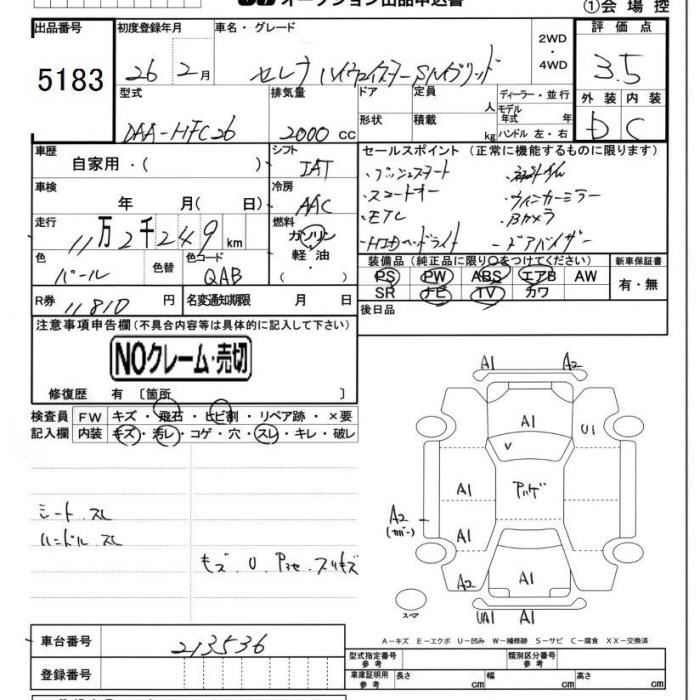 オークション出品申込書
①会場控
出品番号 初度登録年月 車名・グレード 2WD・4WD 評価点
5183 26年2月 セレナ ハイウェイスターSハイブリッド 3.5
型式 排気量 ドア 定員 人 ディーラー・並行 外装 内装
DAA-HFC26 2000cc 形状 積載 kg モデル年式 年 ハンドル 左・右 D C
車歴 自家用・( ) シフト IAT セールスポイント (正常に機能するものに限ります)
・プッシュスタート
・スマートキー ・ウィンカーミラー
・ETC ・Bカメラ
・HIDヘッドライト ・ドアバイザー
車検 年 月(日) 冷房 AAC
走行 11万2千249km 燃料 ガソリン・軽油・( )
色 パール 色替 色コード QAB
装備品 (純正品に限り○をつけてください) 新車保証書
PS PW ABS エアB AW 有・無
SR ナビ TV カワ
R券 11810円 名変通知期限 月 日 後日品
注意事項申告欄 (不具合内容等は具体的に記入して下さい)
NOクレーム・売切
修復歴 有 〔箇所 〕
検査員 FW キズ・飛石・ヒビ割・リペア跡・×要
記入欄 内装 キズ・汚レ・コゲ・穴・スレ・キレ・破レ
シート スレ
ハンドル スレ
キズ U
A1 A2
A1 U1
V
A1
A2 (カバー)
A1
A2 A1
UA1 A1
スペア
A-キズ E-エクボ U-凹み W-補修跡 S-サビ C-腐食 XX-交換済
車台番号 213536
型式指定番号 参考 類別区分番号 参考
登録番号 車庫証明用 参考 長さ cm 幅 cm 高さ cm